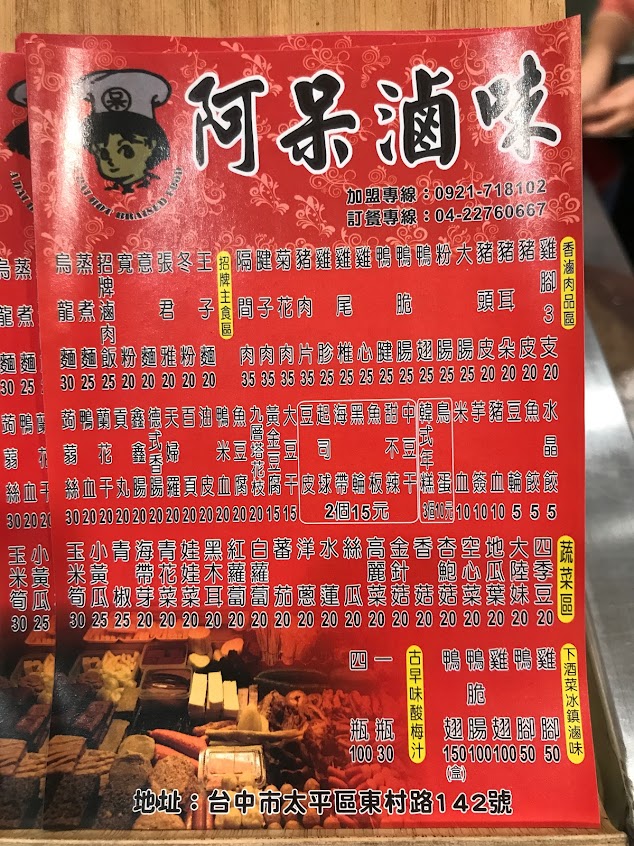 阿呆滷味
加盟專線：0921-718102
訂餐專線：04-22760667
香滷肉品區
雞腳3支 20
豬皮 20
豬耳朵 25
豬頭皮 25
大腸 25
粉腸 25
鴨翅 25
鴨脆腸 25
鴨腱 25
雞心 25
雞尾椎 25
雞胗 25
豬肉片 25
菊花肉 35
腱子肉 35
隔間肉 35
招牌主食區
王子麵 20
冬粉 20
張君雅 20
意麵 20
寬粉 25
招牌滷肉飯 25
蒸煮麵 25
烏龍麵 30
水晶餃 5
魚餃 5
豆輪 5
豬血 10
芋簽 10
米血 10
鳥蛋
韓式年糕
3個10元
中豆干
甜不辣
魚板
黑輪
海帶
起司球
豆皮
2個15元
大豆干 15
黃金豆腐 15
九層塔花枝 20
魚豆腐 20
鴨米血 20
油皮 20
百頁 20
天婦羅 20
德式香腸 20
鑫鑫腸 20
貢丸 20
蘭花干 20
鴨血 20
蒟蒻絲 30
蔬菜區
四季豆 20
大陸妹 20
地瓜葉 20
空心菜 20
杏鮑菇 20
香菇 20
金針菇 20
高麗菜 20
絲瓜 20
水蓮 20
洋蔥 20
蕃茄 20
白蘿蔔 20
紅蘿蔔 20
黑木耳 20
娃娃菜 20
青花菜 20
海帶芽 20
青椒 20
小黃瓜 25
玉米筍 30
下酒菜冰鎮滷味
雞腳 50
鴨腳 50
雞翅 100
鴨脆腸 100
鴨翅 150(盒)
古早味酸梅汁
一瓶 30
四瓶 100
地址：台中市太平區東村路142號